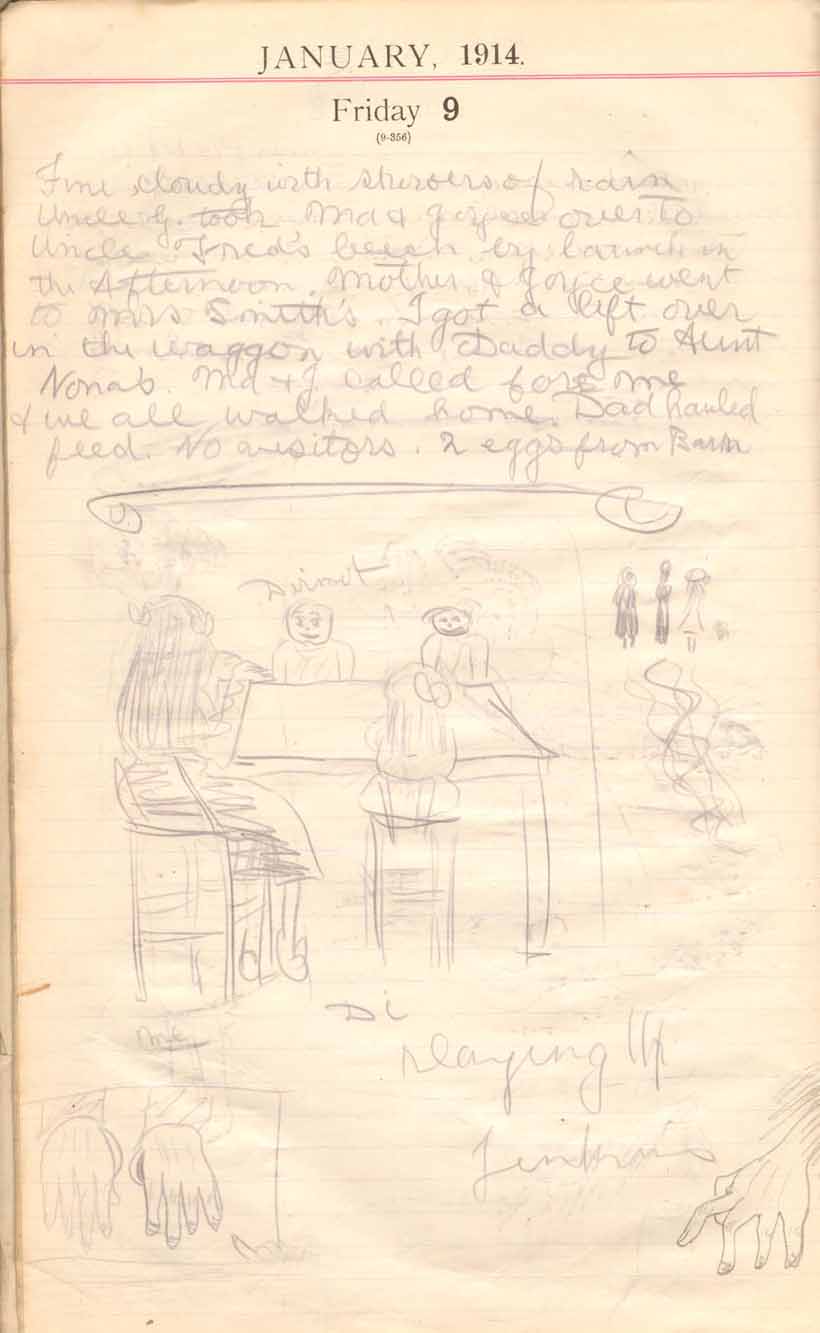 JANUARY, 1914.
Friday 9
(9-356)
Fine cloudy with showers of rain
Uncle G. took Ma & Joyce over to
Uncle Fred's beech by launch in
the Afternoon. Mother & Joyce went
to Mrs Smith's. I got a lift over
in the waggon with Daddy to Aunt
Nonas. Ma & J called fore me
& we all walked home. Dad hauled
feed. No visitors. 2 eggs from Barn
Me
Di
Playing Up
Jenkins